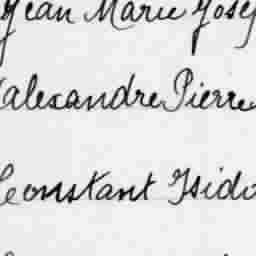 Jean Marie Josep
alexandre Pierre
Constant Isido